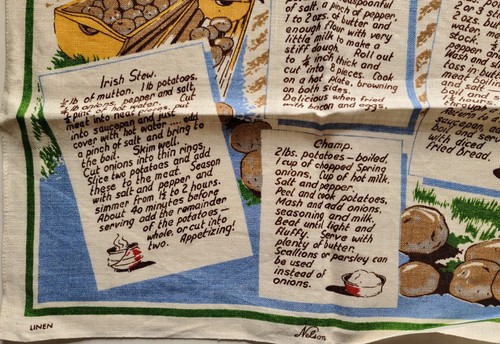 Irish Stew.
½lb of mutton. 1lb potatoes.
½lb onions, pepper and salt,
pints hot water. Cut
meat into neat pieces, put
into saucepan and just
cover with hot water add
a pinch of salt and bring to
the boil. Skim well.
Cut onions into thin rings,
Slice two potatoes and add
these to the meat. Season
with salt and pepper, and
simmer from 1½ to 2 hours.
About 40 minutes before
serving add the remainder
of the potatoes—
whole or cut into
two. Appetizing!
of salt, a pinch of pepper,
1 to 2 ozs. of butter and
enough flour with very
little milk to make a
stiff dough. Roll out
to ¼ inch thick and
cut into 8 pieces. Cook
on a hot plate, browning
on both sides.
Delicious when fried
with bacon and eggs.
Champ.
2lbs. potatoes — boiled,
1 cup of chopped Spring
onions, ¼pt. hot milk.
Salt and pepper.
Peel and cook potatoes.
Mash and add onions
seasoning and milk.
Beat until light and
fluffy. Serve with
plenty of butter.
Scallions or parsley can
be used
instead of
onions.
2 or 3
2 ozs.
water,
stock
pepper
Mash and
toss in
meat
and salt
boil, and
hours
through
Return
saucepan
boil, and serve
with diced
fried bread.
LINEN
Nelson